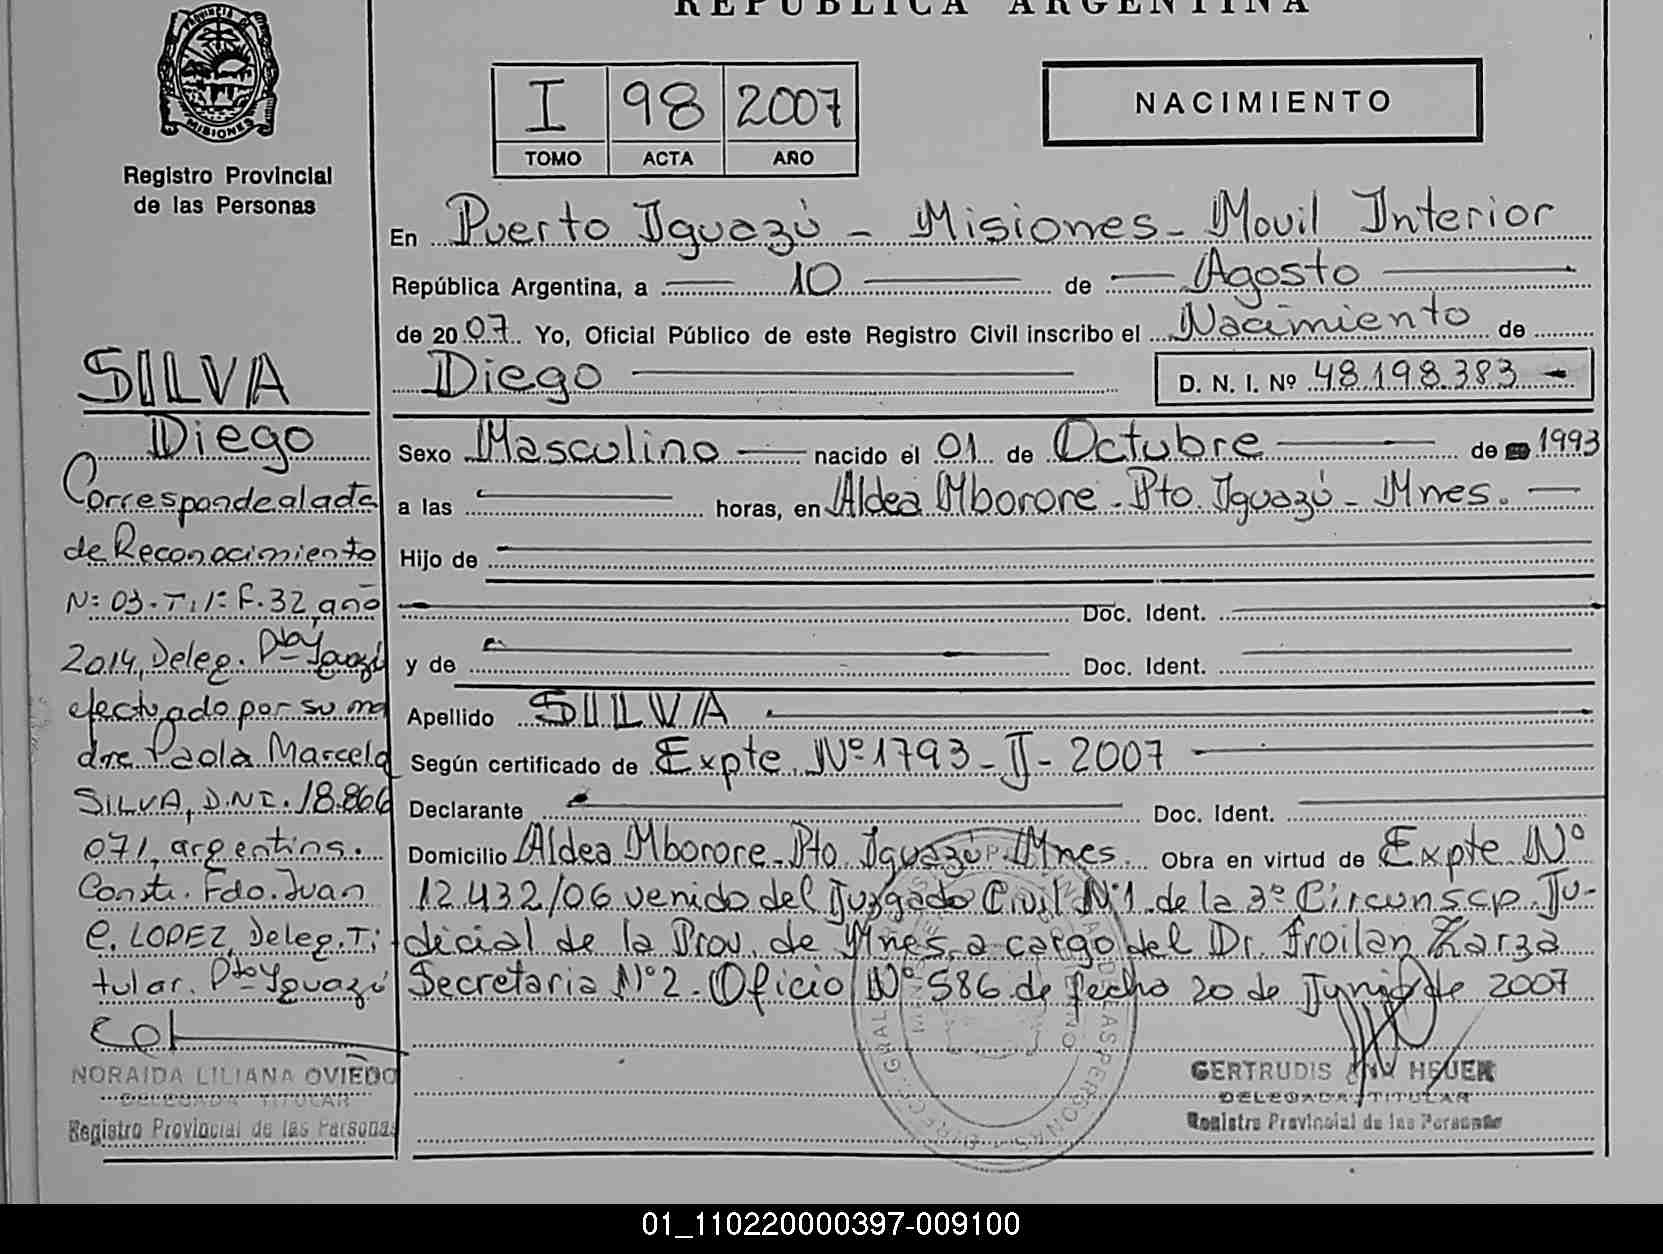 REPUBLICA ARGENTINA
PROVINCIA DE
MISIONES
Registro Provincial
de las Personas
I 98 2007
TOMO ACTA AÑO
NACIMIENTO
En Puerto Iguazú - Misiones - Movil Interior
República Argentina, a 10 de Agosto
de 2007 Yo, Oficial Público de este Registro Civil inscribo el Nacimiento de
Diego D. N. I. Nº 48.198.383
Sexo Masculino nacido el 01 de Octubre de 1993
a las horas, en Aldea Mborore - Pto. Iguazú - Mnes.
Hijo de
Doc. Ident.
y de Doc. Ident.
Apellido SILVA
Según certificado de Expte Nº 1793 - II - 2007
Declarante Doc. Ident.
Domicilio Aldea Mborore - Pto Iguazú - Mnes. Obra en virtud de Expte Nº
12.432/06 venido del Juzgado Civil Nº1 de la 3º Circunscp. Ju-
dicial de la Prov. de Mnes, a cargo del Dr. Froilan Zarza
Secretaria Nº2 - Oficio Nº 586 de fecha 20 de Junio de 2007
GERTRUDIS HEUER
DELEGADA TITULAR
Registro Provincial de las Personas
SILVA
Diego
Corresponde al acta
de Reconocimiento
Nº: 03 - T: 1º F. 32, año
2014, Deleg. Pto Iguazú
efectuado por su ma
dre Paola Marcela
SILVA, D.N.I. 18.866
071, argentina.
Const. Fdo. Juan
C. LOPEZ, Deleg. Ti
tular. Pto Iguazú
NORAIDA LILIANA OVIEDO
DELEGADA TITULAR
Registro Provincial de las Personas
01_110220000397-009100